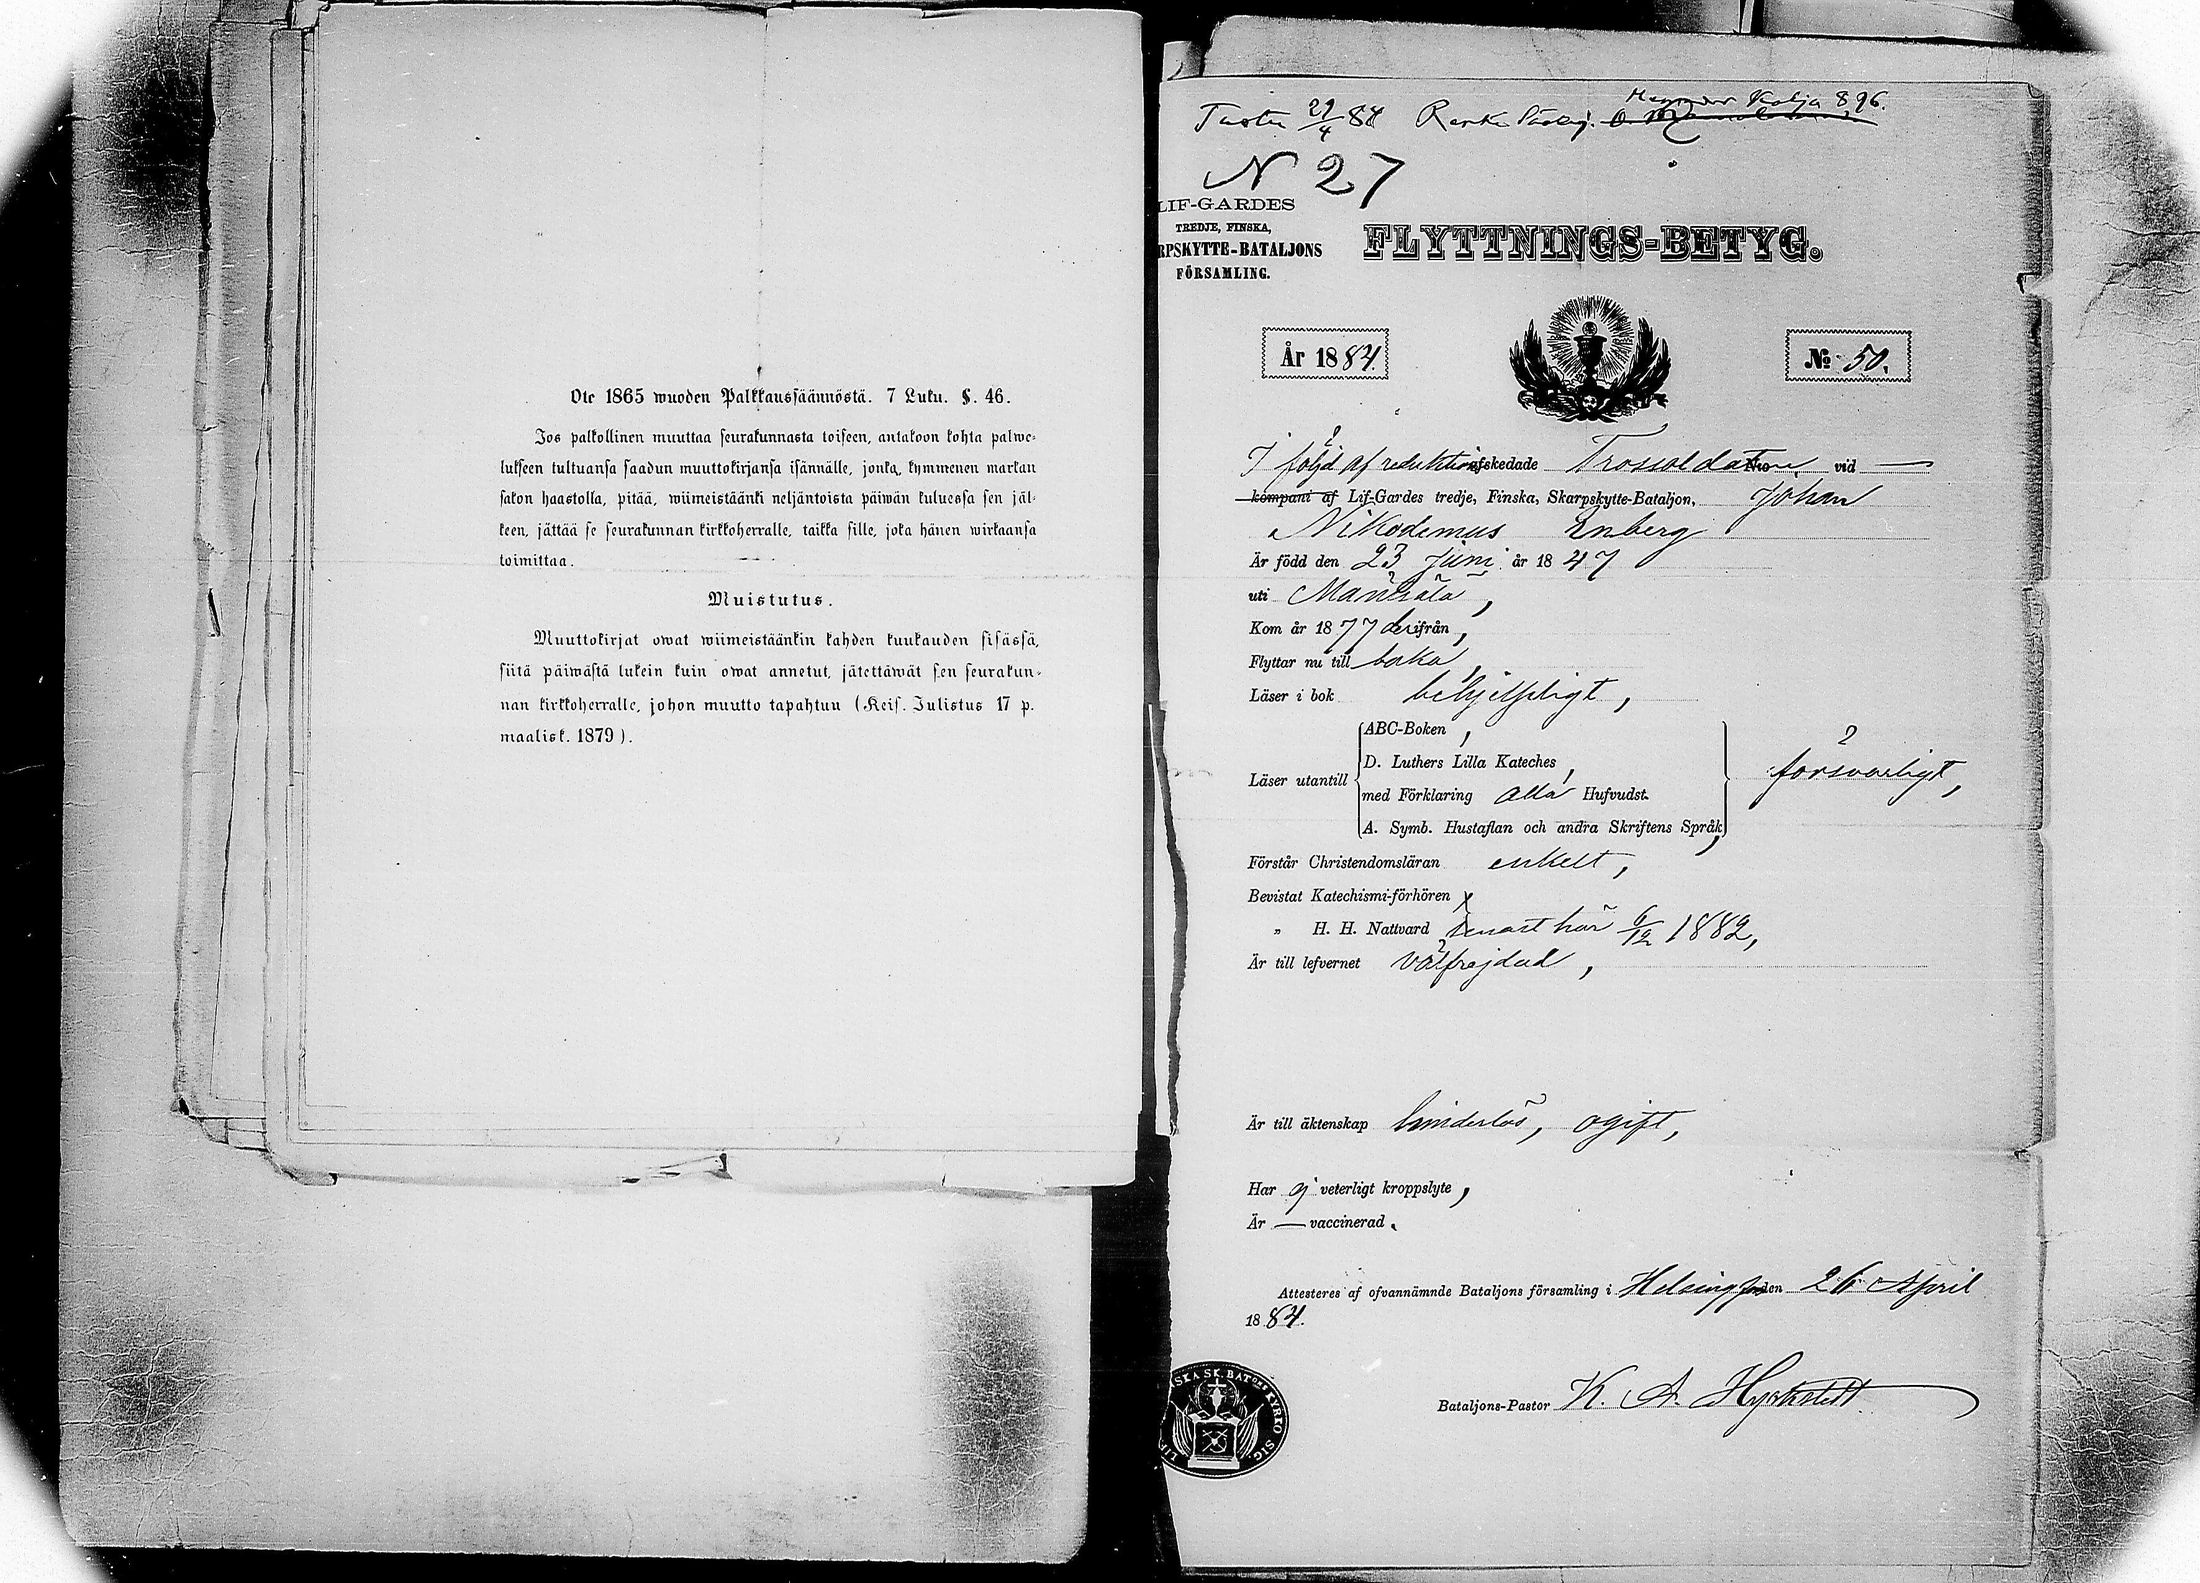 Ote 1865 wuoden Palkkaussäännöstä. 7 Luku. §. 46.
Jos palkollinen muuttaa seurakunnasta toiseen, antakoon kohta palwe-
lukseen tultuansa saadun muuttokirjansa isännälle, jonka, kymmenen markan
sakon haastolla, pitää, wiimeistäänki neljäntoista päiwän kuluessa sen jäl-
keen, jättää se seurakunnan kirkkoherralle, taikka sille, joka hänen wirkaansa
toimittaa.
Muistutus.
Muuttokirjat owat wiimeistäänkin kahden kuukauden sisässä,
siitä päiwästä lukein kuin owat annetut, jätettäwät sen seurakun-
nan kirkkoherralle, johon muutto tapahtuu (Keis. Julistus 17 p.
maalisk. 1879).
29/4 84 896.
N 27
LIF-GARDES
TREDJE, FINSKA,
RPSKYTTE-BATALJONS
FÖRSAMLING.
FLYTTNINGS-BETYG.
År 1884. No 50.
I följd af reduktion afskedade Trossoldaten vid —
kompani af Lif-Gardes tredje, Finska, Skarpskytte-Bataljon, Johan
Nikodemus Enberg
Är född den 23 Juni år 1847
uti Mäntsälä,
Kom år 1877 derifrån,
Flyttar nu till
Läser i bok behjelpligt,
ABC-Boken,
D. Luthers Lilla Kateches,
Läser utantill med Förklaring alla Hufvudst. försvarligt,
A. Symb. Hustaflan och andra Skriftens Språk,
Förstår Christendomsläran enkelt,
Bevistat Katechismi-förhören
„ H. H. Nattvard senast här 6/12 1882,
Är till lefvernet välfrejdad,
Är till äktenskap hinderlös, ogift,
Har ej veterligt kroppslyte,
Är — vaccinerad.
Attesteres af ofvannämnde Bataljons församling i Helsingfors den 26 April
1884.
SKA SK. BATONS KYRKO SIG.
Bataljons-Pastor K. A.